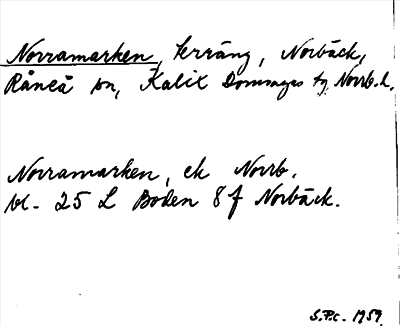 Norramarken, terräng, Norbäck,
Råneå sn, Kalix Domsagas tg, Norrb. l.
Norramarken, ek Norrb.
bl. 25 L Boden 8 f Norbäck.
S.P.c. 1959.